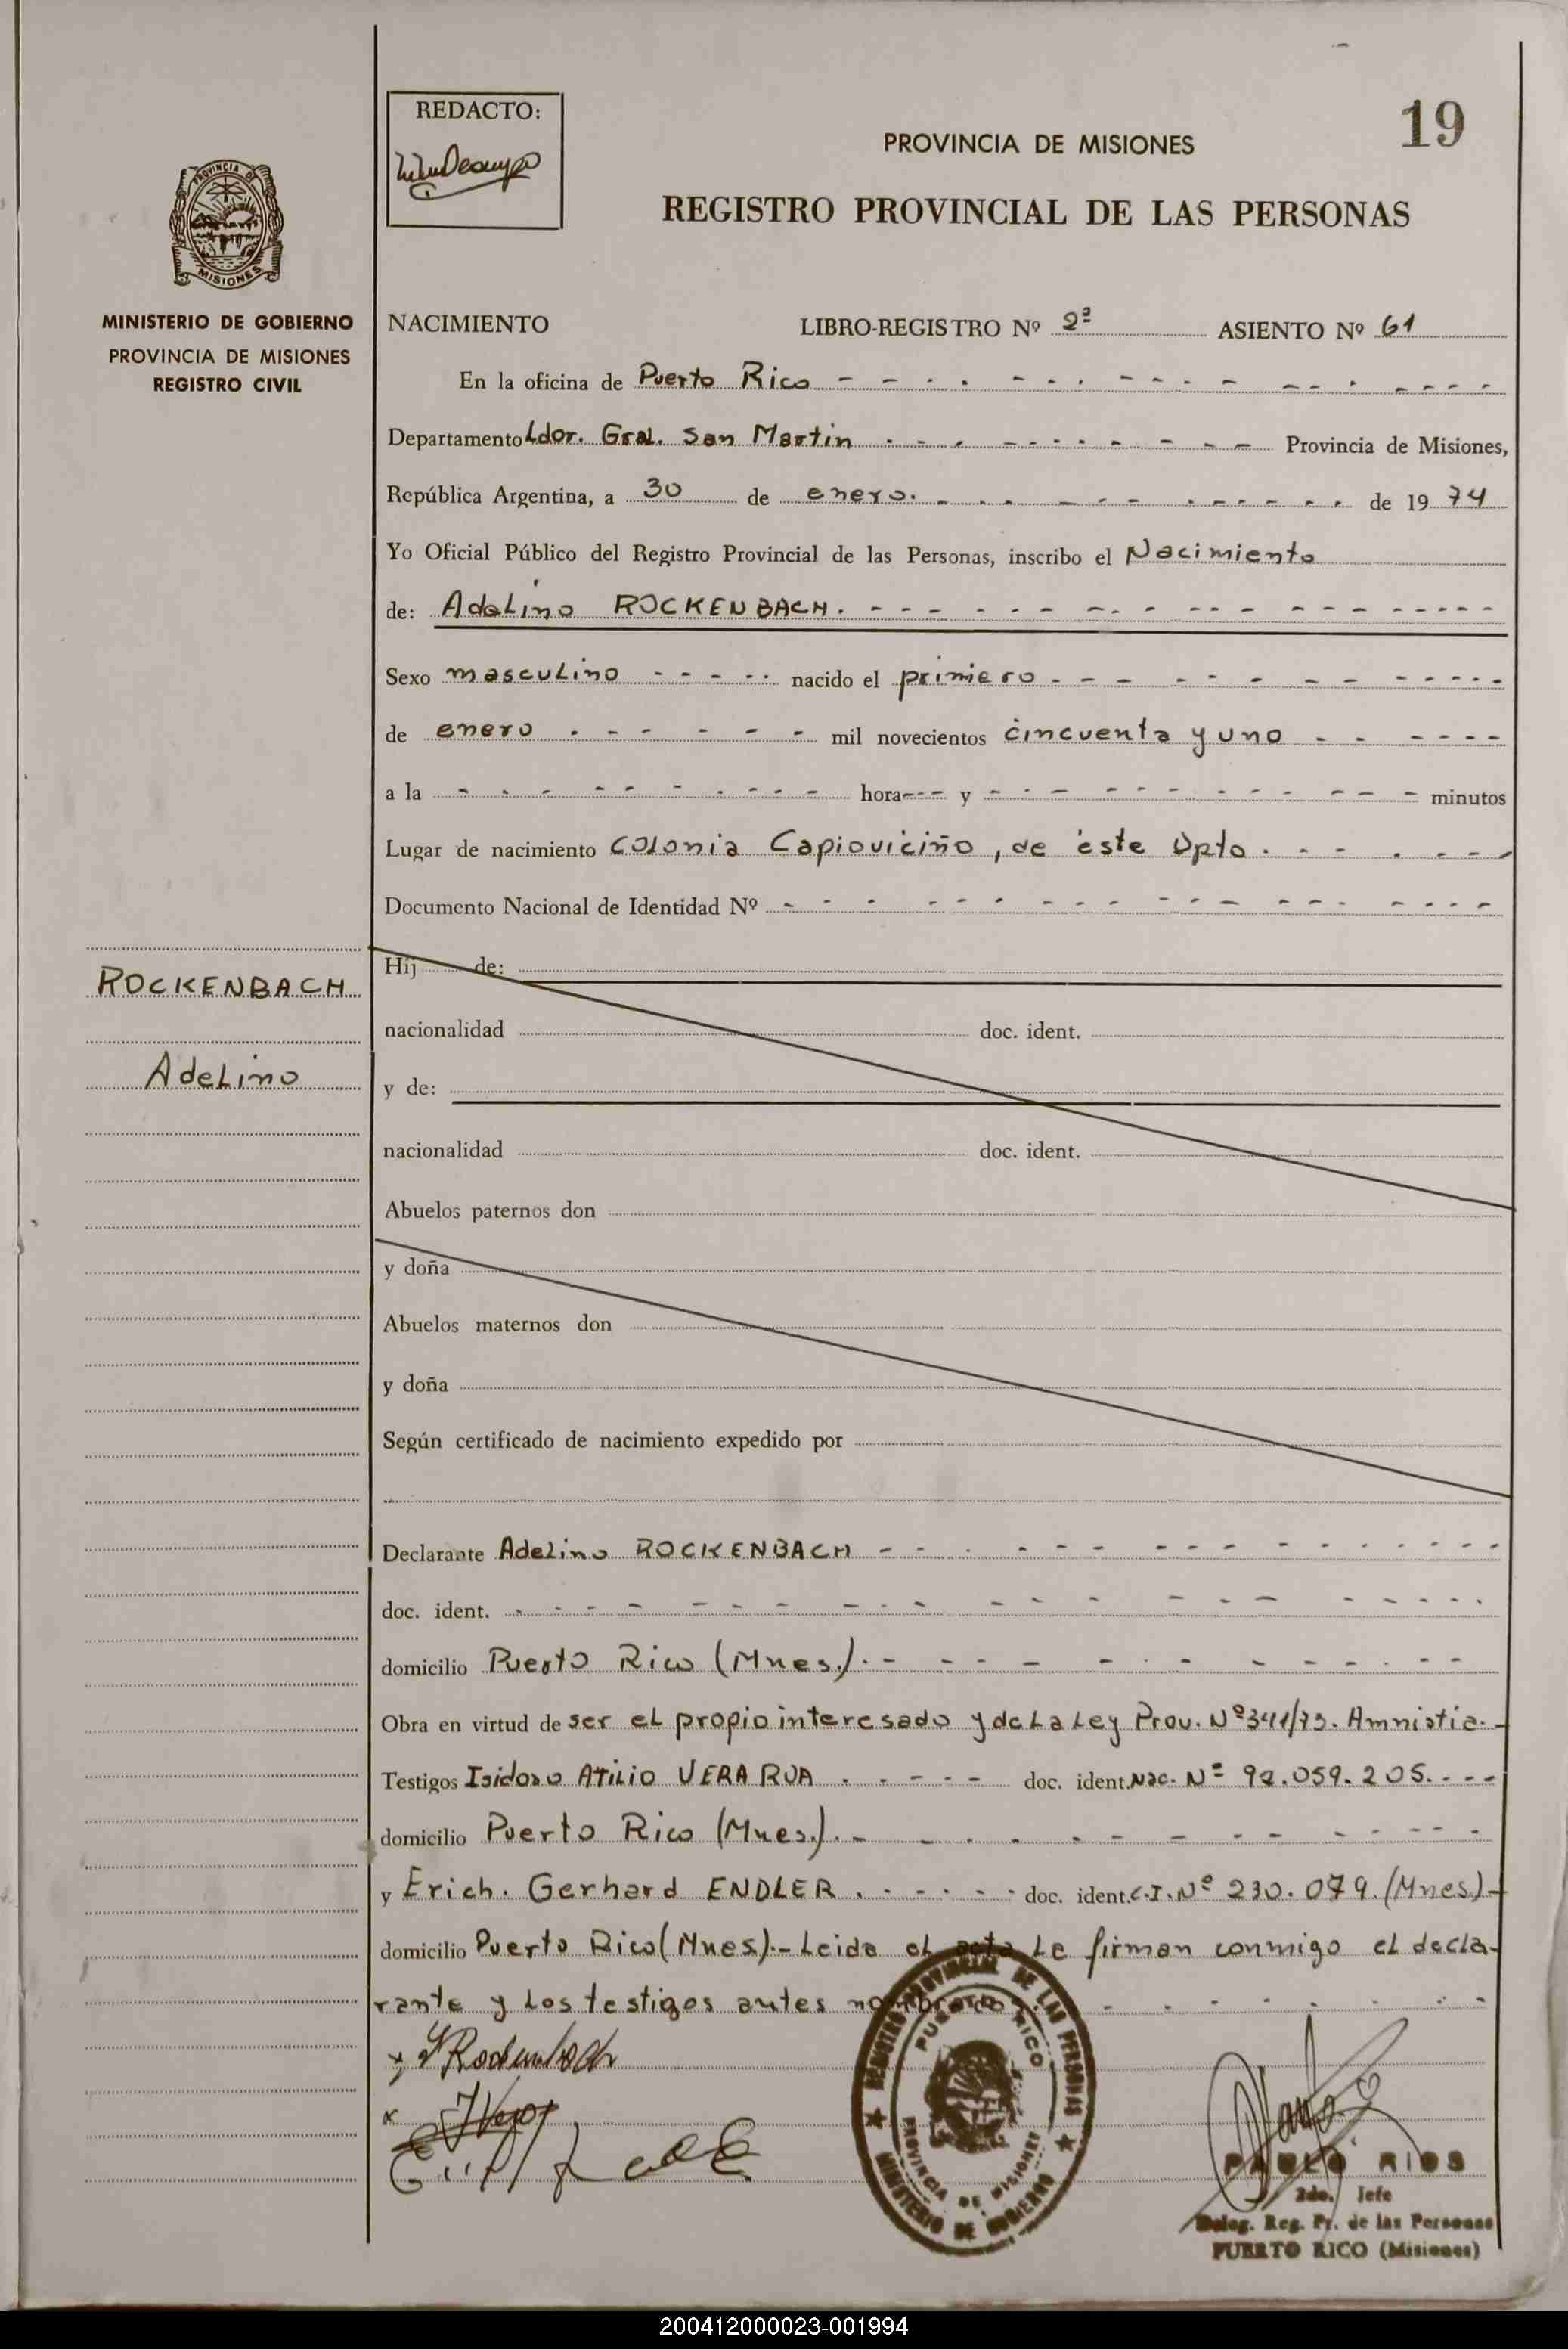 REDACTO:
19
PROVINCIA DE MISIONES
REGISTRO PROVINCIAL DE LAS PERSONAS
PROVINCIA DE
MISIONES
MINISTERIO DE GOBIERNO
PROVINCIA DE MISIONES
REGISTRO CIVIL
NACIMIENTO LIBRO-REGISTRO Nº 2º ASIENTO Nº 61
En la oficina de Puerto Rico
Departamento Ldor. Gral. San Martin Provincia de Misiones,
República Argentina, a 30 de enero. de 1974
Yo Oficial Público del Registro Provincial de las Personas, inscribo el Nacimiento
de: Adelino ROCKENBACH.
Sexo masculino nacido el primero
de enero mil novecientos cincuenta y uno
a la hora y minutos
Lugar de nacimiento Colonia Capioviciño, de éste Dpto.
Documento Nacional de Identidad Nº
Hij de:
nacionalidad doc. ident.
y de:
nacionalidad doc. ident.
Abuelos paternos don
y doña
Abuelos maternos don
y doña
Según certificado de nacimiento expedido por
ROCKENBACH
Adelino
Declarante Adelino ROCKENBACH
doc. ident.
domicilio Puerto Rico (Mnes.).
Obra en virtud de ser el propio interesado y de La Ley Prov. Nº 341/73. Amnistia.
Testigos Isidoro Atilio VERA RUA doc. ident. Nac. Nº 92.059.205.
domicilio Puerto Rico (Mnes.).
y Erich. Gerhard ENDLER. doc. ident. C.I. Nº 230.079. (Mnes.)
domicilio Puerto Rico (Mnes.).- Leida el acta La firman conmigo el decla-
rante y Los testigos antes nombrados.
REGISTRO PROVINCIAL DE LAS PERSONAS
PUERTO RICO
PROVINCIA DE MISIONES
MINISTERIO DE GOBIERNO
PABLO RIOS
2do. Jefe
Deleg. Reg. Pr. de las Personas
PUERTO RICO (Misiones)
200412000023-001994